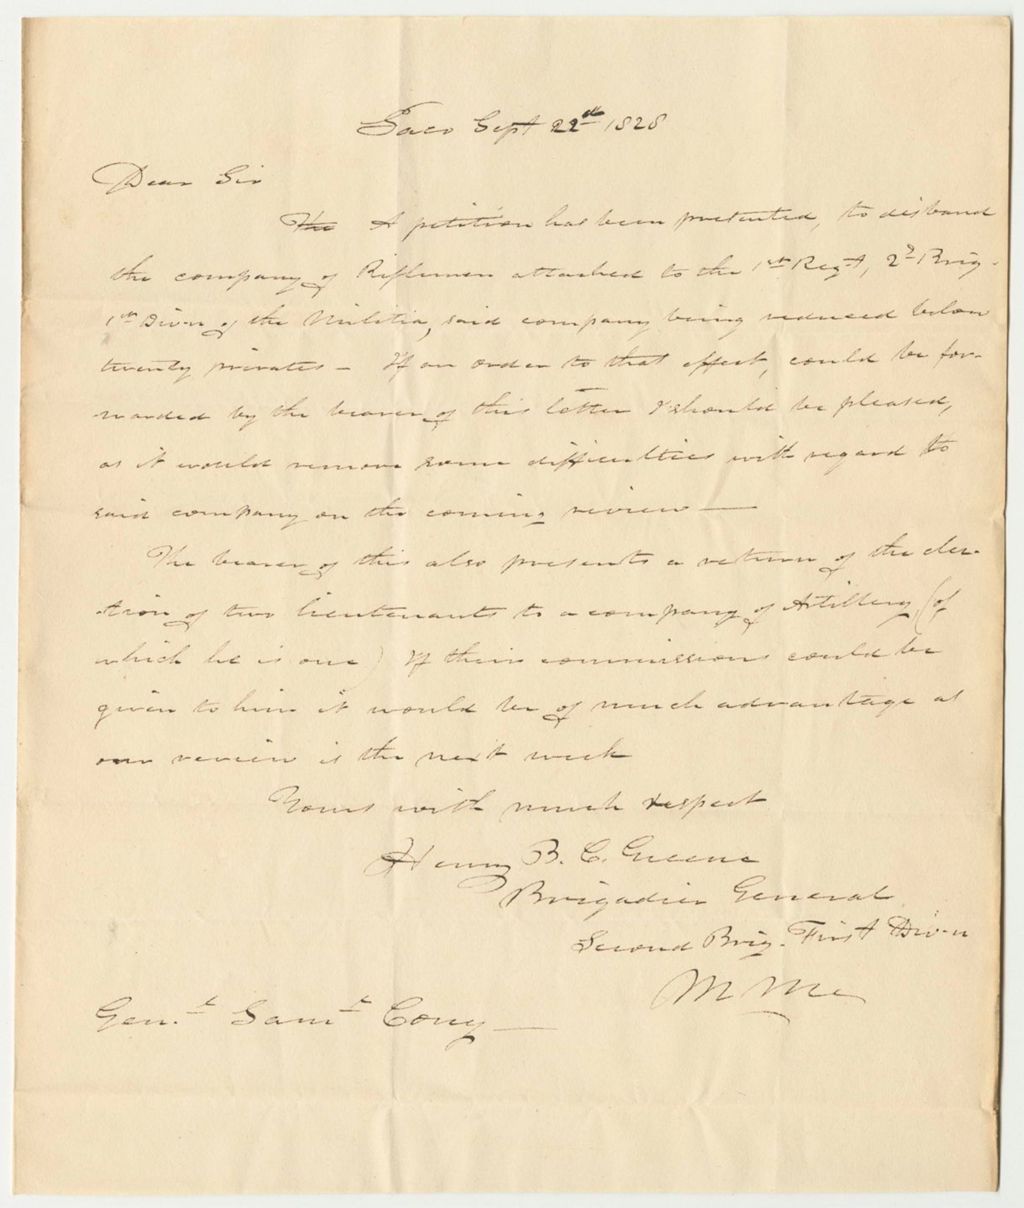 Saco Sept 22d 1828
Dear Sir
The A petition has been presented, to disband
the company of Riflemen attached to the 1st Regt, 2d Brig.
1st Divn of the Militia, said company being reduced below
twenty privates - If an order to that effect, could be for-
warded by the bearer of this letter I should be pleased,
as it would remove some difficulties with regard to
said company on the coming review —
The bearer of this also presents a return of the elec-
tion of two lieutenants to a company of Artillery (of
which he is one) If their commissions could be
given to him it would be of much advantage as
our review is the next week
Yours with much respect
Henry B. C. Greene
Brigadier General
Second Brig. First Divn
M Me
Genl. Saml Cony —